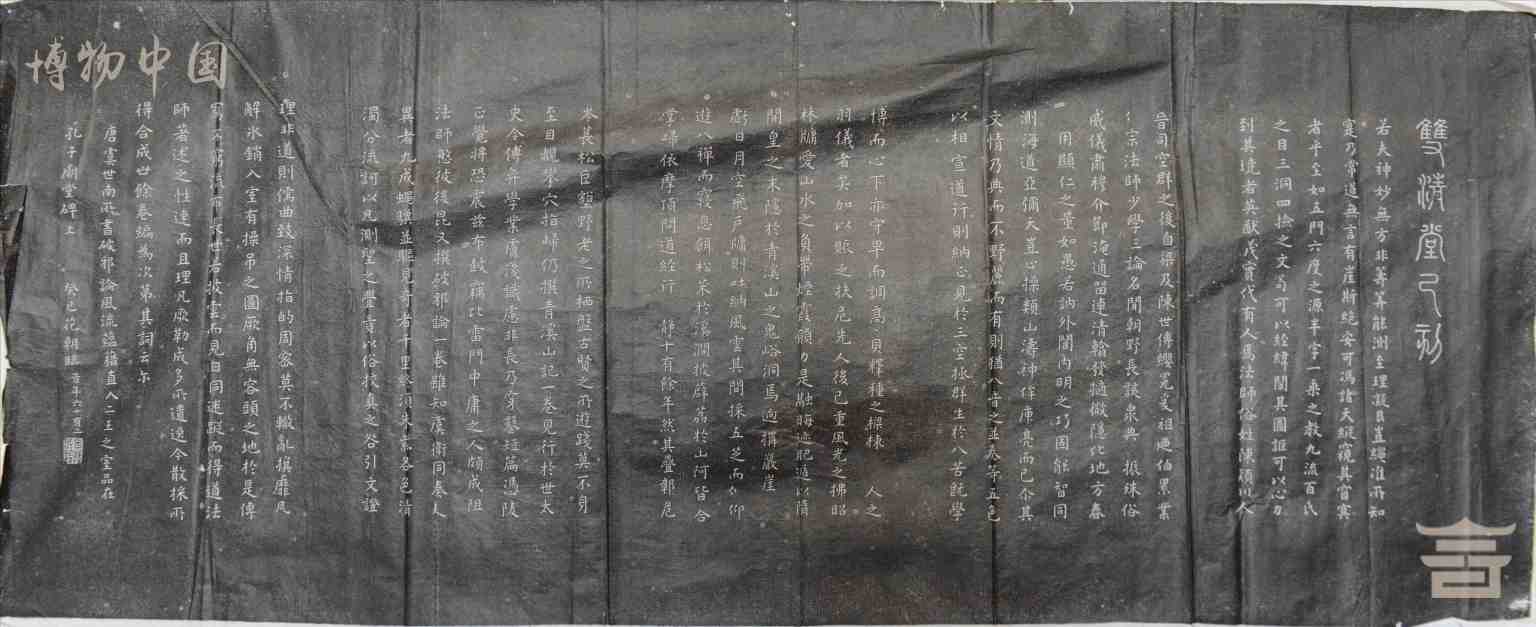 博物中国
雙清堂乙刻
若夫神妙無方非籌算能測至理凝寂豈繩準所知
寔乃常道無言有崖斯絕安可憑諸天縱窺其窅冥
者乎至如五門六度之源半字一乘之教九流百氏
之目三洞四檢之文句可以經緯閫其圖詎可以心力
到其境者英猷茂實代有人焉法師俗姓陳潁川人
晉司空群之後自梁及陳世傳纓冕爰祖逖伯累業
宗法師少學三論名聞朝野長該眾典
威儀肅穆介節淹通留連清翰發擿微隱此地方春
用顯仁之量如愚若訥外闇內明之巧固能智同
測海道亞彌天豈止操類山濤神侔庾亮而已尒其
文情乃典而不野麗而有則猶八音之並奏等五色
以相宣道行則納正見於三空拯群生於八苦既學
博而心下亦守卑而調高實釋種之梁棟 人之
羽儀者矣如以賑之扶危先人後己重風光之拂照
林牖愛山水之負帶煙霞願力是融晦迹肥遁以隋
開皇之末隱於青溪山之鬼谷洞焉迥構巖崖
虧日月空飛戶牖則吐納風雲其間採五芝而仰
遊八禪而寢息餌松朮於溪澗披薜荔於山河皆合
掌歸依摩頂問道經行 靜十有餘年然其疊鄣危
岑長松巨壑野老之所栖盤古賢之所遊踐莫不身
至目覩累穴指歸仍撰青溪山記一卷見行於世太
史令傅奕學業膚淺識慮非長乃穿鑿短篇憑陵
正覺將恐震茲布鼓竊比雷門中庸之人頗成阻
法師愍彼後昆又撰破邪論一卷雖知虞衛同奏人
異者九成蠅驥並驅見奇者千里終須朱紫各色清
濁分流詎以凡測聖之譽等以俗校真之咎引文證
理非道則儒曲致深情指的周密莫不轍亂旗靡瓦
解冰銷入室有操矛之圖厥角無容頭之地於是傳
師著述之性速而且理凡厥勒成多所遺逸今散採所
得合成世餘卷編為次第其詞云尒
唐虞世南所書破邪論風流蘊藉直入二王之室品在
孔子廟堂碑上 癸巳花朝